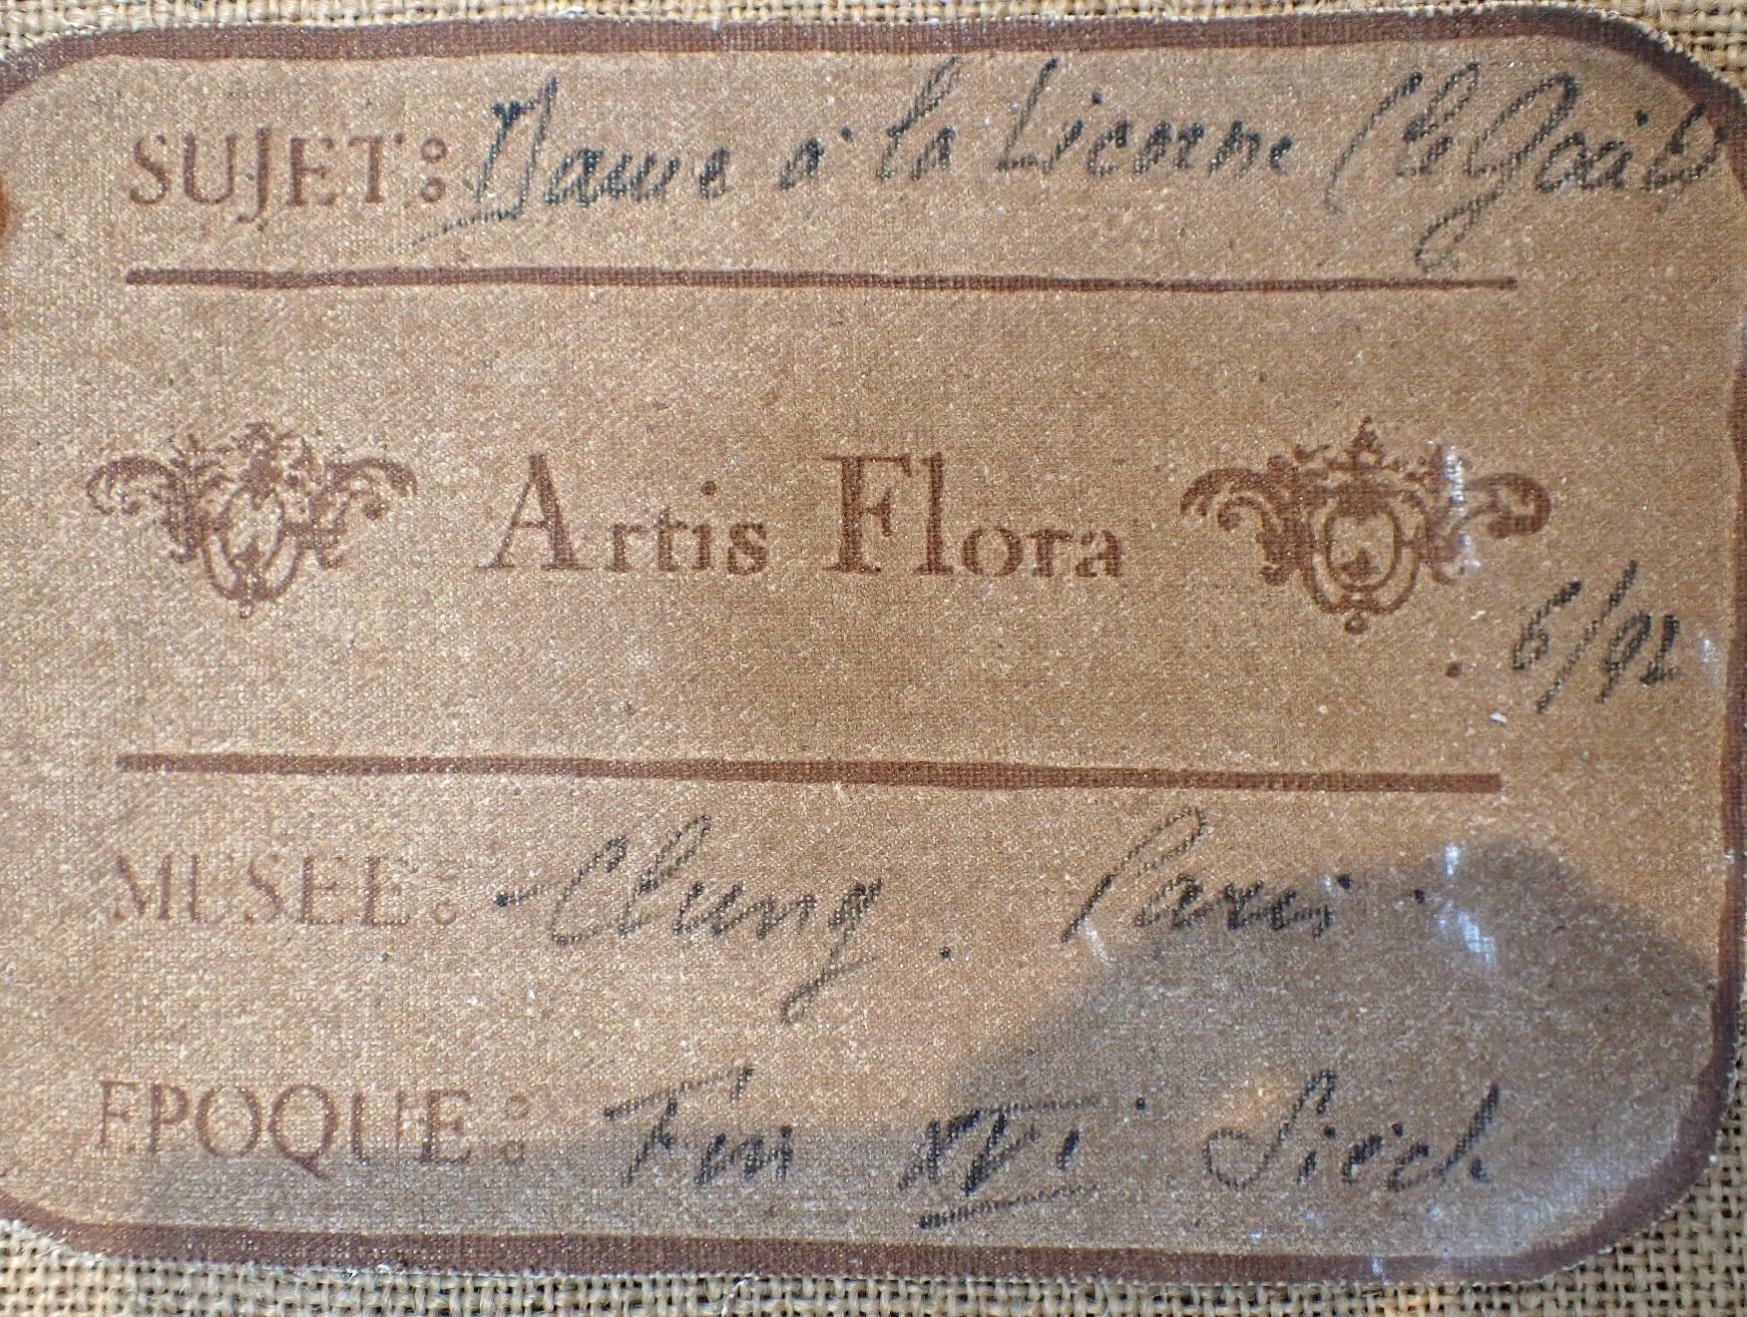 SUJET: Dame à la Licorne (Le Goût)
Artis Flora
5/92
MUSEE: Cluny. Paris.
EPOQUE: Fin XVe Siècle